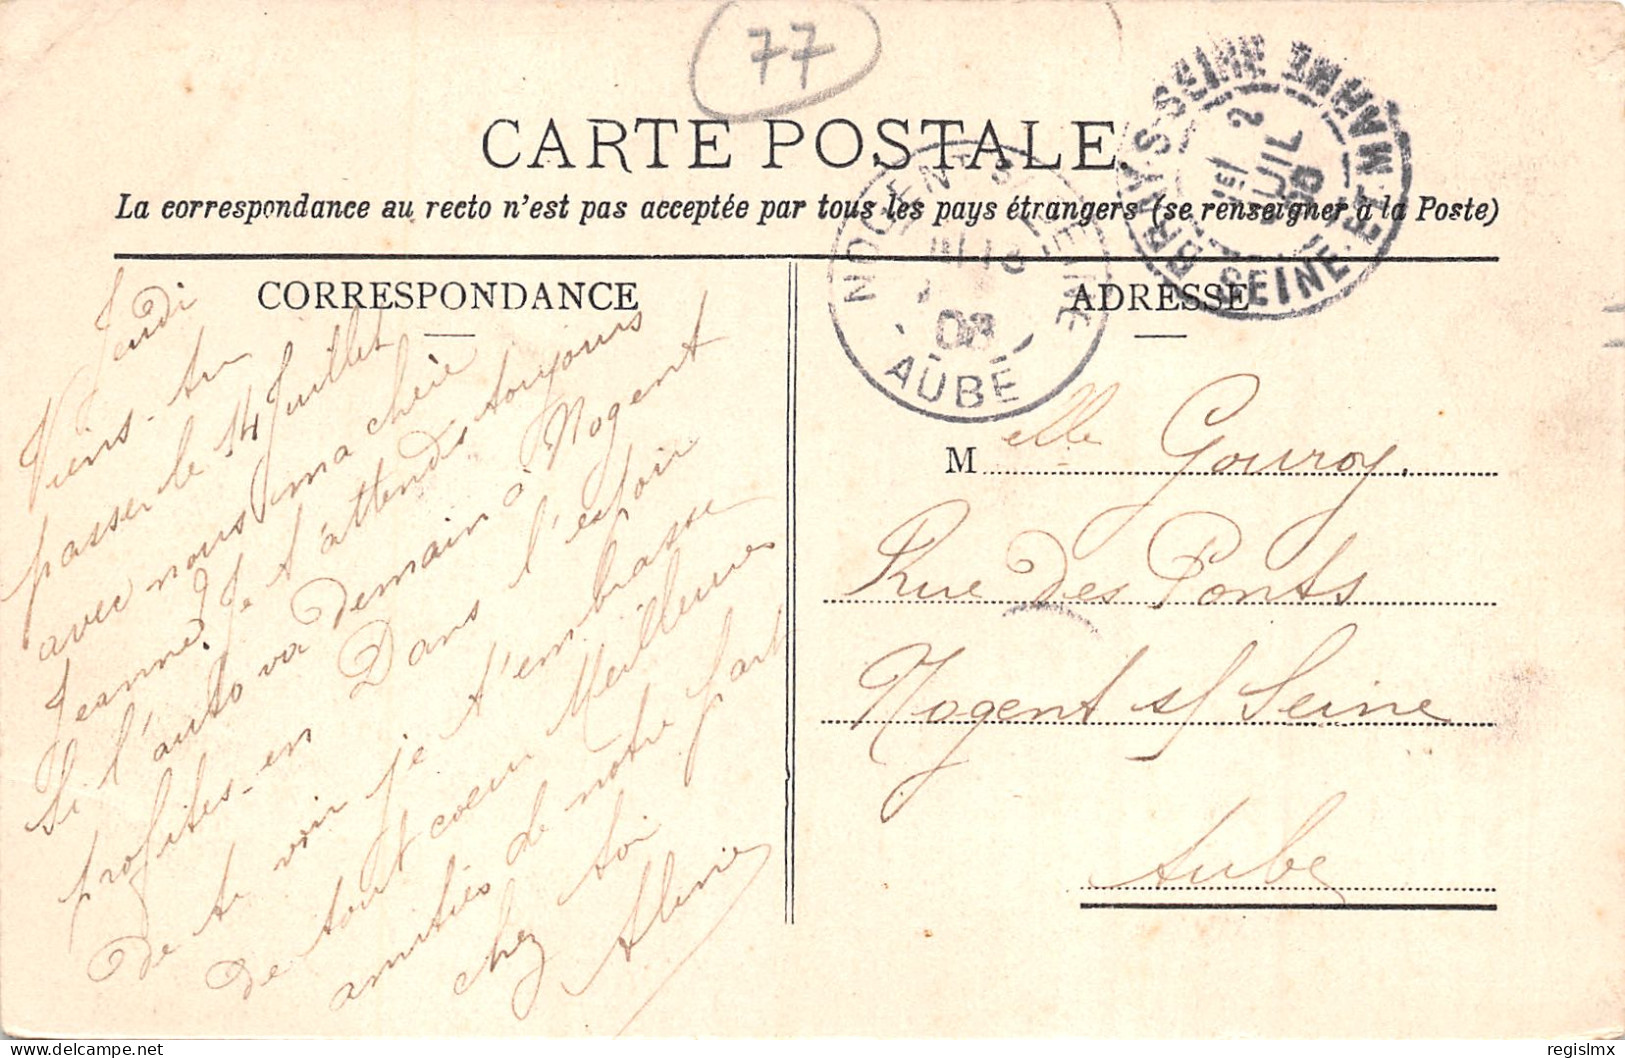 77
CARTE POSTALE
La correspondance au recto n'est pas acceptée par tous les pays étrangers (se renseigner à la Poste)
BRAY-S-SEINE
SEINE-ET-MARNE
2
JUIL
NOGENT S SEINE
08
AUBE
CORRESPONDANCE
ADRESSE
Jeudi
Viens-tu
passer le 14 Juillet
avec nous ma chère
Jeanne? Je t'attends toujours
Si l'auto va demain à Nogent
profites-en Dans l'espoir
de te voir je t'embrasse
de tout coeur Meilleures
amitiés de notre part
chez toi
M elle Gouroy.
Rue des Ponts
Nogent s/ Seine
Aube
delcampe.net
regislmx